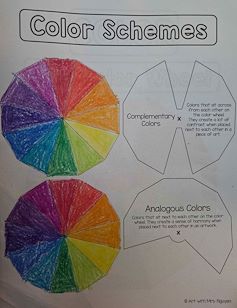 Color Schemes
Complementary
Colors
x
Colors that sit across
from each other on
the color wheel.
They create a lot of
contrast when placed
next to each other in a
piece of art.
Analogous Colors
Colors that sit next to each other on the color
wheel. They create a sense of harmony when
placed next to each other in an artwork.
x
© Art with Mrs. Nguyen